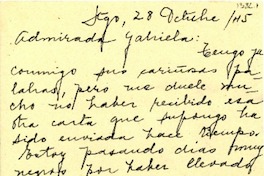 Stgo, 28 Octubre/45
Admirada Gabriela:
Tengo ya
conmigo sus cariñosas pa-
labras, pero me duele mu-
cho no haber recibido esa
otra carta que supongo ha
sido enviada hace tiempo.
Estoy pasando días muy
negros por haber llevado